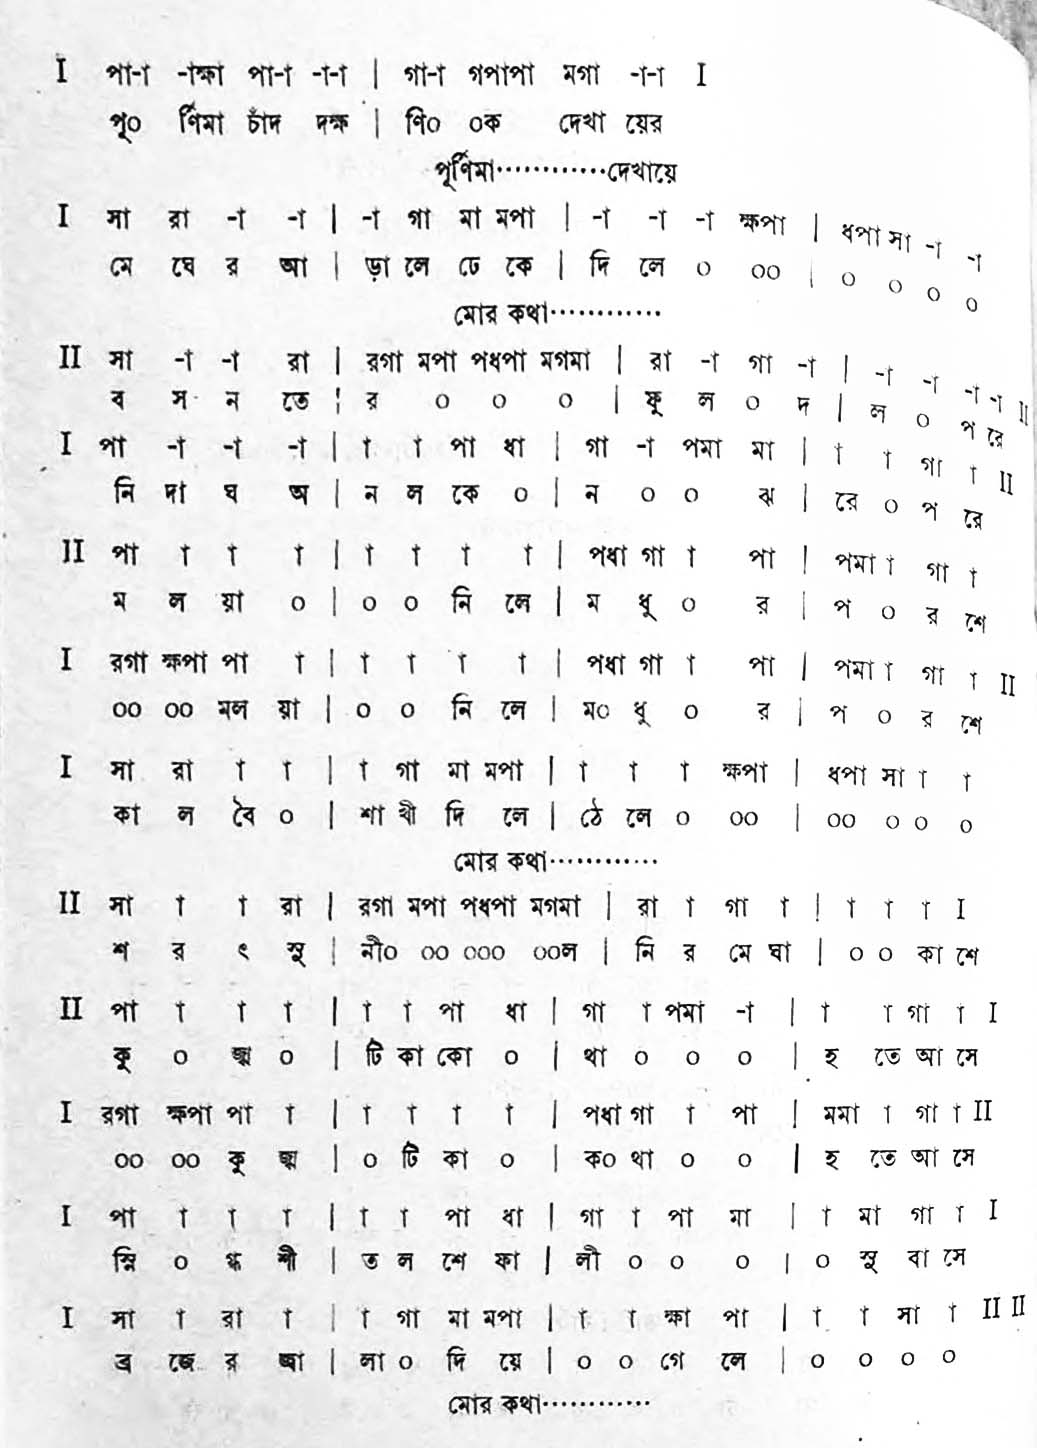 I পা-া -াক্ষা পা-া -া-া | গা-া গপাপা মগা -া-া I
পূ০ র্ণিমা চাঁদ দক্ষ | ণি০ ০ক দেখা য়ের
পূর্ণিমা············দেখায়ে
I সা রা -া -া | -া গা মা মপা | -া -া -া ক্ষপা | ধপা সা -া -া
মে ঘের আ | ড়া লে ঢে কে | দি লে ০ ০০ | ০ ০ ০ ০
মোর কথা············
II সা -া -া রা | রগা মপা পধপা মগমা | রা -া গা -া | -া -া -া -া II
ব স ন তে | র ০ ০ ০ | ফু ল ০ দ | ল ০ প রে
I পা -া -া -া | া া পা ধা | গা -া পমা মা | া া গা া II
নি দা ঘ অ | ন ল কে ০ | ন ০ ০ ঝ | রে ০ প রে
II পা া া া | া া া া | পধা গা া পা | পমা া গা া
ম ল য়া ০ | ০ ০ নি লে | ম ধু ০ র | প ০ র শে
I রগা ক্ষপা পা া | া া া া | পধা গা া পা | পমা া গা া II
০০ ০০ মল য়া | ০ ০ নি লে | ম০ ধু ০ র | প ০ র শে
I সা রা া া | া গা মা মপা | া া া ক্ষপা | ধপা সা া া
কা ল বৈ ০ | শা খী দি লে | ঠে লে ০ ০০ | ০০ ০ ০ ০
মোর কথা············
II সা া া রা | রগা মপা পধপা মগমা | রা া গা া | া া া I
শ র ৎ সু | নী০ ০০ ০০০ ০০ল | নি র মে ঘা | ০ ০ কা শে
II পা া া া | া া পা ধা | গা া পমা -া | া া গা া I
কু ০ জ্ঝ ০ | টি কা কো ০ | থা ০ ০ ০ | হ তে আ সে
I রগা ক্ষপা পা া | া া া া | পধা গা া পা | মমা া গা া II
০০ ০০ কু জ্ঝ | ০ টি কা ০ | ক০ থা ০ ০ | হ তে আ সে
I পা া া া | া া পা ধা | গা া পা মা | া মা গা া I
স্নি ০ গ্ধ শী | ত ল শে ফা | লী ০ ০ ০ | ০ সু বা সে
I সা া রা া | া গা মা মপা | া া ক্ষা পা | া া সা া II II
ব্র জে র জ্বা | লা ০ দি য়ে | ০ ০ গে লে | ০ ০ ০ ০
মোর কথা············